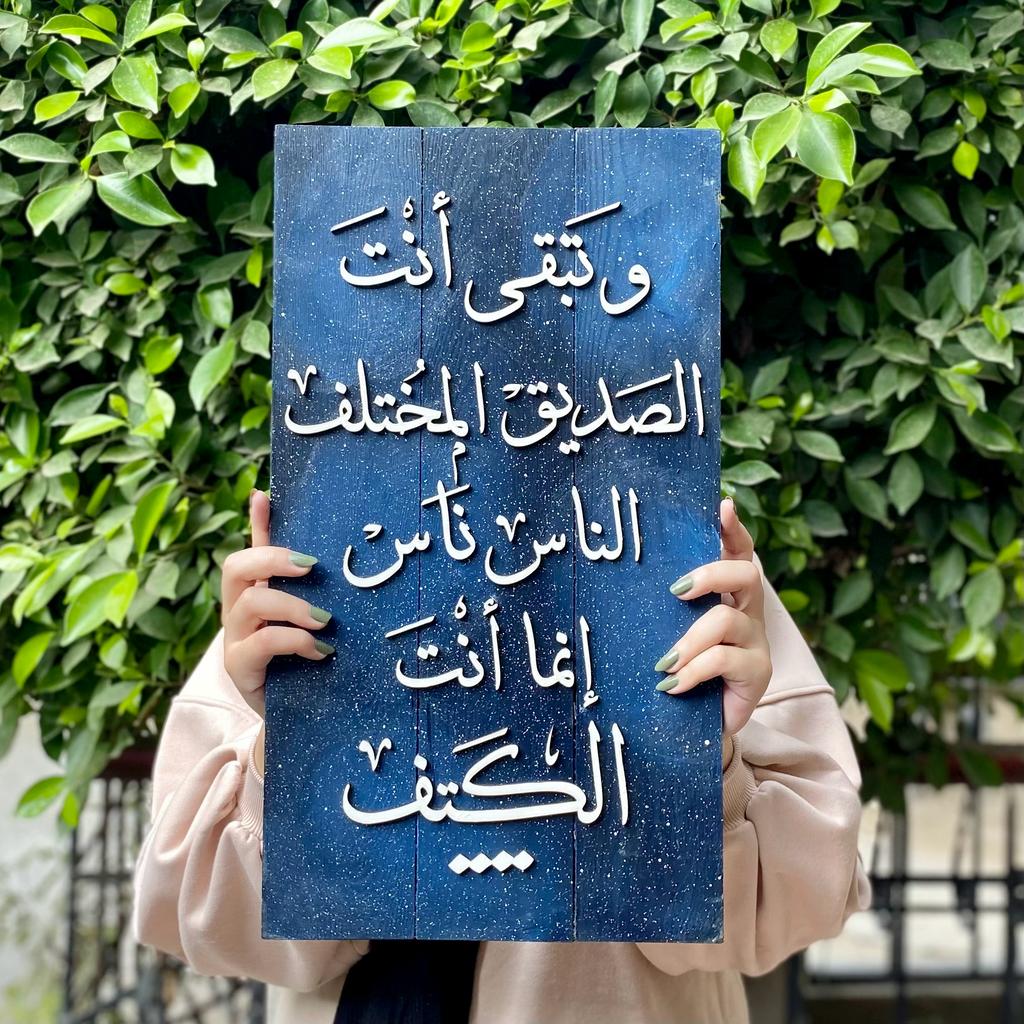 و تَبقى أنْتَ
الصَديق المُختلف
الناس نَاسْ
إنما أنْتَ
الكَتف